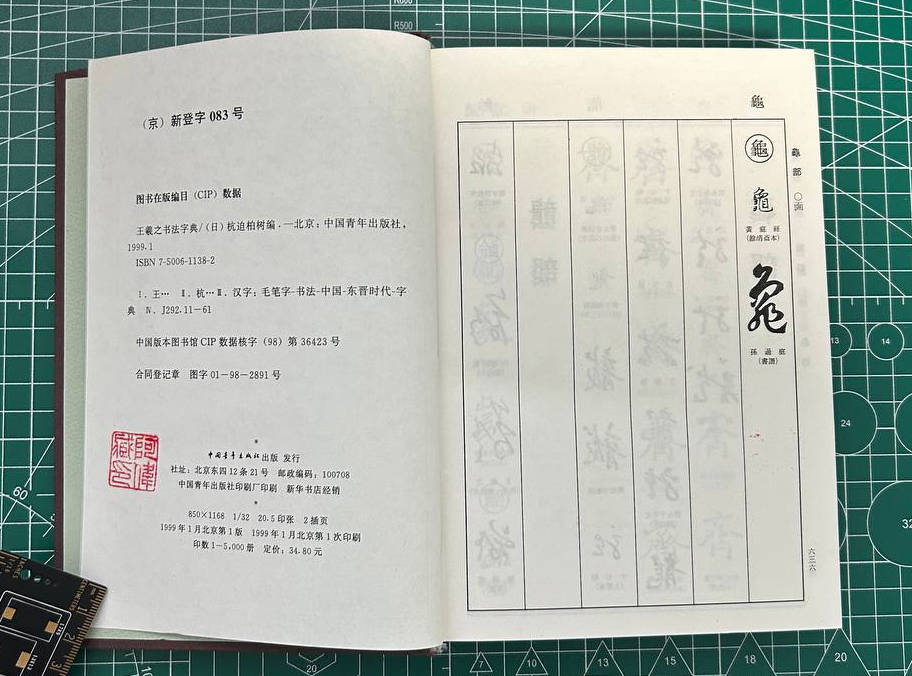 (京) 新登字 083 号
图书在版编目 (CIP) 数据
王羲之书法字典/(日)杭迫柏树编.—北京:中国青年出版社,
1999.1
ISBN 7-5006-1138-2
Ⅰ.王… Ⅱ.杭… Ⅲ.汉字:毛笔字-书法-中国-东晋时代-字
典 Ⅳ.J292.11-61
中国版本图书馆 CIP 数据核字 (98) 第 36423 号
合同登记章 图字 01-98-2891 号
*
中国青年出版社出版 发行
社址:北京东四12条21号 邮政编码:100708
中国青年出版社印刷厂印刷 新华书店经销
*
850×1168 1/32 20.5 印张 2 插页
1999年1月北京第1版 1999年1月北京第1次印刷
印数 1-5,000 册 定价:34.80 元
阿偉
藏印
龜
龜部 〇画
龜
龜
黃庭経
(餘清斎本)
龜
孫過庭
(書譜)
六三六
R500
60
20
7
10
13
15
18
20
13
14
24
32